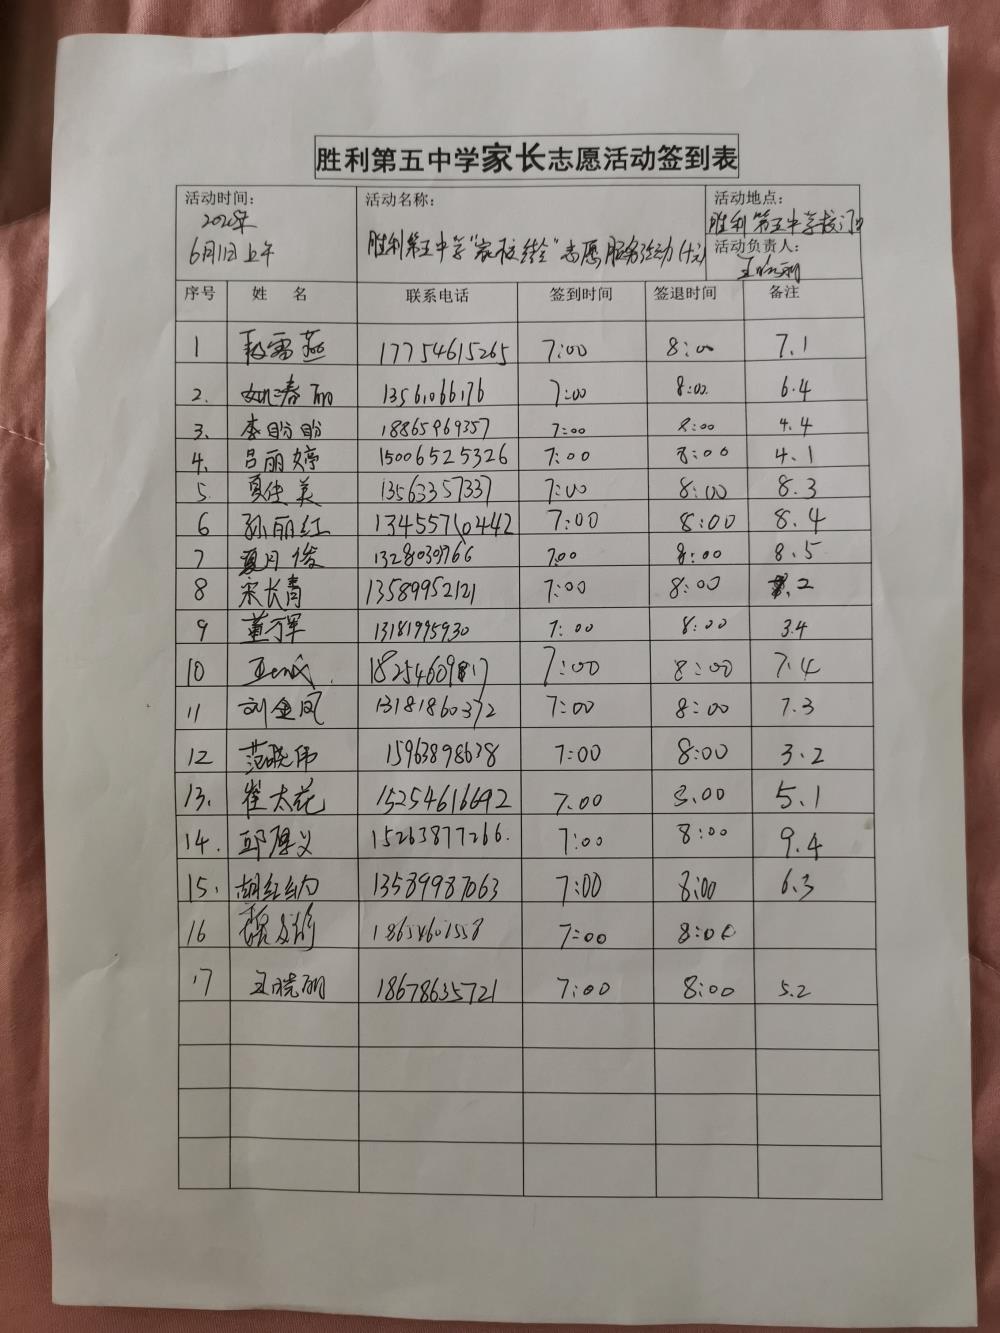 胜利第五中学家长志愿活动签到表
活动时间：
6月11日上午
活动名称：
胜利第五中学"家校结合"志愿服务活动
活动地点：
胜利第五中学校门口
活动负责人：
序号 姓 名 联系电话 签到时间 签退时间 备注
1 17754615265 7:00 8:00 7.1
2. 姚春丽 13561066176 7:00 8:00. 6.4
3. 李盼盼 18865969357 7:00 8:00 4.4
4. 吕丽婷 15006525326 7:00 8:00 4.1
5. 夏佳美 13563357337 7:00 8:00 8.3
6 孙丽红 13455710442 7:00 8:00 8.4
7 夏月俊 7:00 8:00 8.5
8 宋长青 13589952121 7:00 8:00
9 董万军 13181995930 7:00 8:00 3.4
10 7:00 8:00 7.4
11 刘金凤 13181860372 7:00 8:00 7.3
12 范晓伟 15963898638 7:00 8:00 3.2
13. 崔太花 15254616692 7.00 8.00 5.1
14. 邱厚义 15263877266. 7:00 8:00 9.4
15. 胡红红 13589987063 7:00 8:00 6.3
16 7:00 8:00
17 王晓丽 18678635721 7:00 8:00 5.2